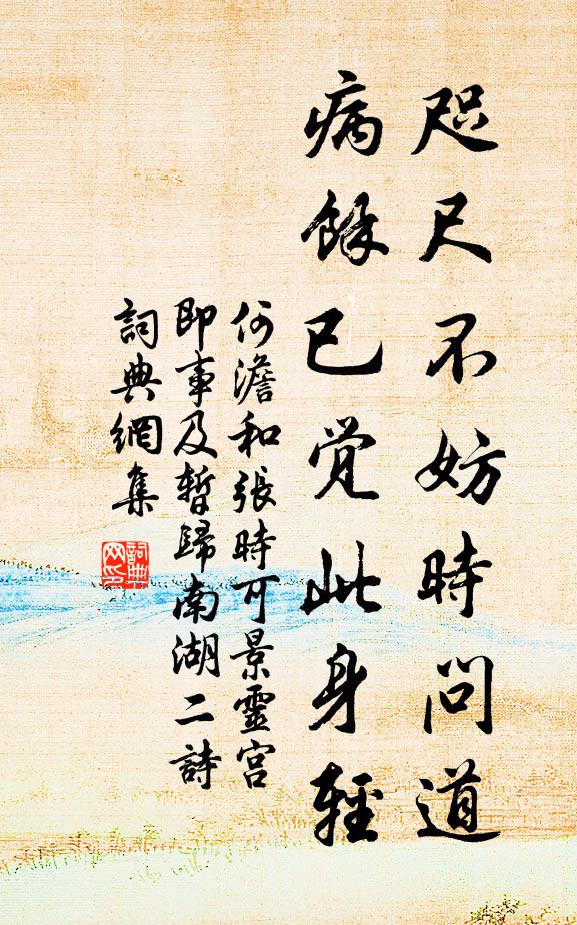 咫尺不妨時問道
病餘已覺此身輕
何澹和張時可景靈宮
即事及暫歸南湖二詩
詞典網集
詞典
网印